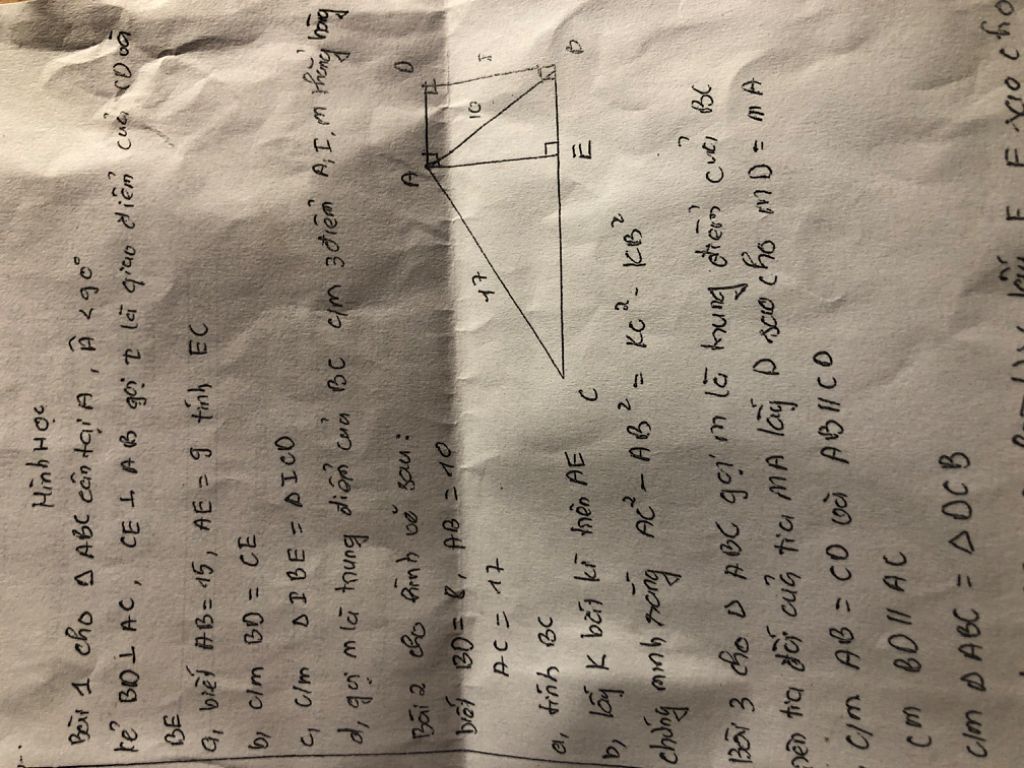 Hình Học
Bài 1 cho Δ ABC cân tại A, Â < 90°
kẻ BD ⊥ AC, CE ⊥ AB gọi I là giao điểm của CD và
BE
a, biết AB = 15, AE = 9 tính EC
b, c/m BD = CE
c, c/m Δ IBE = Δ ICD
d, gọi m là trung điểm của BC c/m 3 điểm A, I, m thẳng hàng
Bài 2 cho hình vẽ sau:
biết BD = 8, AB = 10
AC = 17
A
D
17
10
I
C
E
B
a, tính BC
b, lấy K bất kì trên AE
chứng minh rằng AC² - AB² = KC² - KB²
Bài 3 cho Δ ABC gọi m là trung điểm của BC
trên tia đối của tia MA lấy D sao cho MD = MA
c/m AB = CD và AB // CD
cm BD // AC
c/m Δ ABC = Δ DCB
lấy E, F sao cho